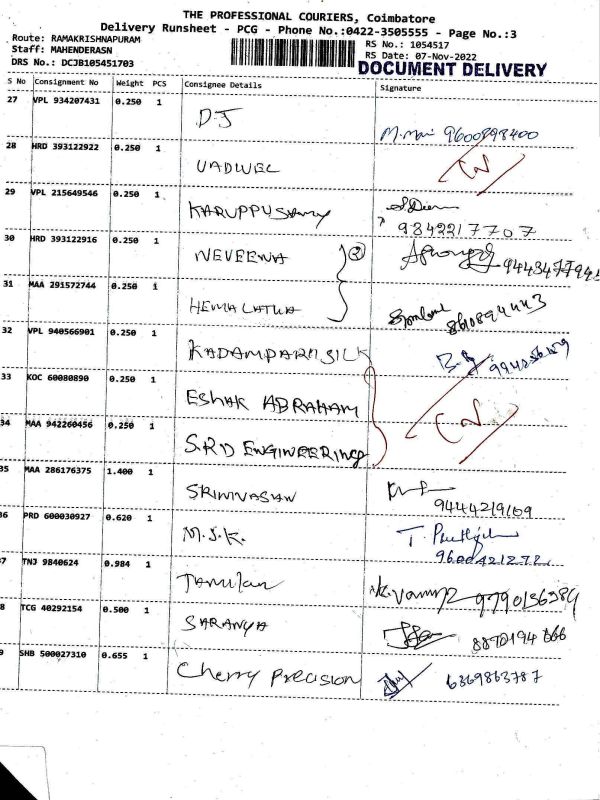 THE PROFESSIONAL COURIERS, Coimbatore
Delivery Runsheet - PCG - Phone No.:0422-3505555 - Page No.:3
Route: RAMAKRISHNAPURAM
Staff: MAHENDERASN
DRS No.: DCJB105451703
RS No.: 1054517
RS Date: 07-Nov-2022
DOCUMENT DELIVERY
S No Consignment No Weight PCS Consignee Details Signature
27 VPL 934207431 0.250 1
D.J
M.Mani 9600898400
28 HRD 393122922 0.250 1
VADIVEL
29 VPL 215649546 0.250 1
KARUPPUSAMY
9342217707
30 HRD 393122916 0.250 1
NEVEENA 2
31 MAA 291572744 0.250 1
HEMALATHA
32 VPL 940566901 0.250 1
33 KOC 60080890 0.250 1
ESHAK ABRAHAM
34 MAA 942260456 0.250 1
S.R.D ENGINEERING
35 MAA 286176375 1.400 1
SRINIVASAN
9444219109
36 PRD 600030927 0.620 1
M.S.K.
9600421272
7 TNJ 9840624 0.984 1
Tamilan
9790136384
8 TCG 40292154 0.500 1
SARANYA
8870194666
9 SHB 500027310 0.655 1
Cherry Precision
6369863787